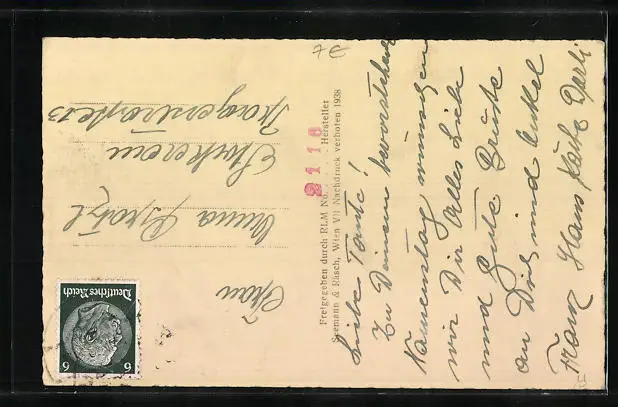 7€
Liebe Tante!
Zu Deinem bevorstehend
Namenstag wünschen
wir Dir Alles Liebe
und Gute Grüße
an Dich und Onkel
Franz Hans Käthe
Freigegeben durch RLM No. . . . . . Hersteller
2116
Seemann & Räsch, Wien VII Nachdruck verboten 1938
Frau
Anna
Stockerau
Deutsches Reich
6 6